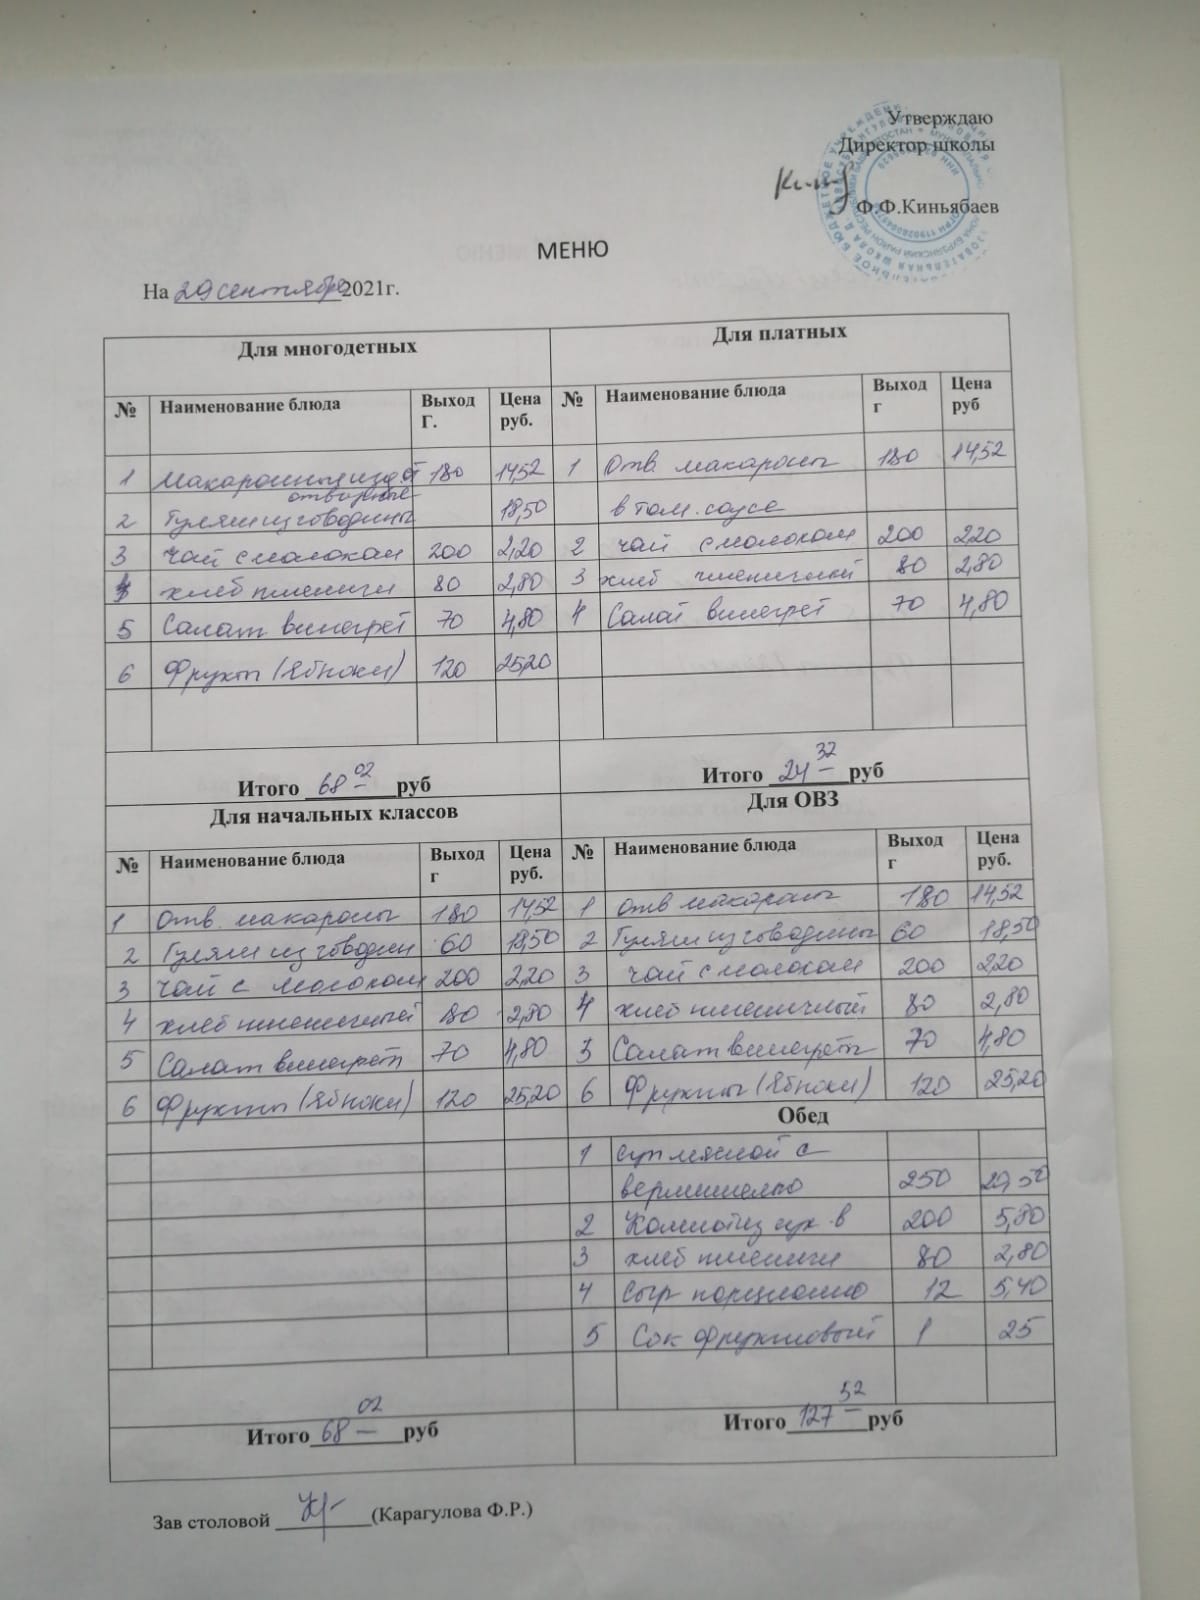 Утверждаю
Директор школы
Ф.Ф.Киньябаев
МЕНЮ
На 29 сентября 2021г.
Для многодетных Для платных
№ Наименование блюда Выход Г. Цена руб. № Наименование блюда Выход г Цена руб
1 Макаронный изд от 180 14,52 1 Отв. макароны 180 14,52
отворные
2 Гуляш из говядины 18,50 в том. соусе
3 Чай с молоком 200 2,20 2 чай с молоком 200 2,20
4 хлеб пшенич 80 2,80 3 хлеб пшеничный 80 2,80
5 Салат винегрет 70 4,80 4 Салат винегрет 70 4,80
6 Фрукт (Яблоки) 120 25,20
Итого 68 02 руб Итого 24 32 руб
Для начальных классов Для ОВЗ
№ Наименование блюда Выход г Цена руб. № Наименование блюда Выход г Цена руб.
1 Отв. макароны 180 14,52 1 Отв макароны 180 14,52
2 Гуляш из говядин 60 18,50 2 Гуляш из говядины 60 18,50
3 Чай с молоком 200 2,20 3 чай с молоком 200 2,20
4 хлеб пшеничный 80 2,80 4 хлеб пшеничный 80 2,80
5 Салат винегрет 70 4,80 3 Салат винегреты 70 4,80
6 Фрукты (Яблоки) 120 25,20 6 Фрукты (Яблоки) 120 25,20
Обед
1 Суп мясной с
вермишелью 250 20,50
2 Компот из сух. в 200 5,80
3 хлеб пшенич 80 2,80
4 Сыр порционно 12 5,40
5 Сок фруктовый 1 25
Итого 68 02 руб Итого 127 52 руб
Зав столовой (Карагулова Ф.Р.)